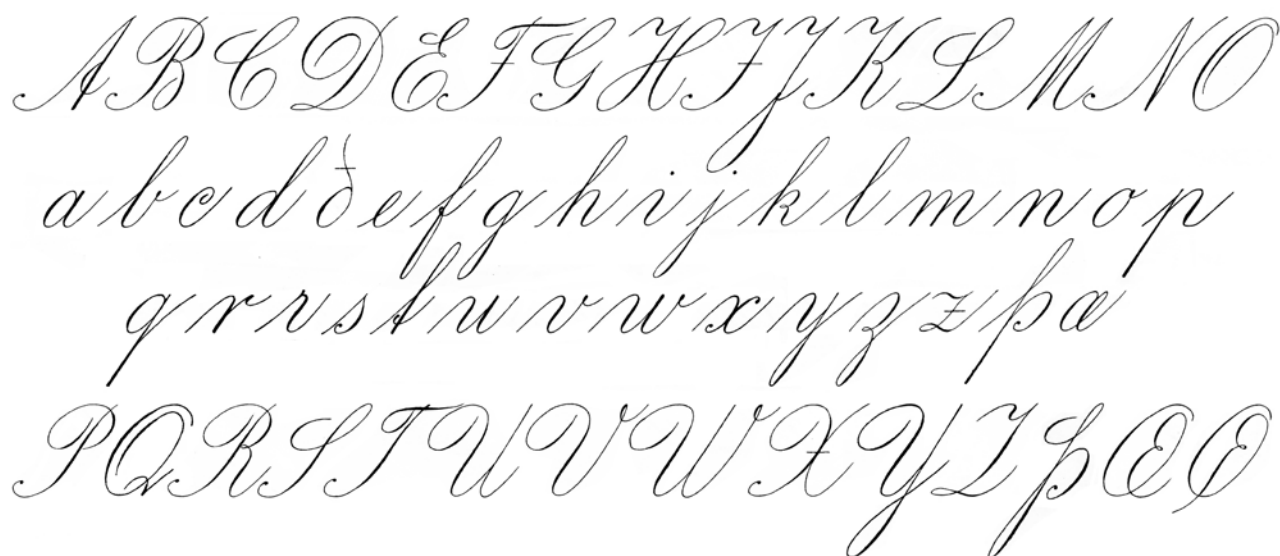 A B C D E F G H I J K L M N O
a b c d ð e f g h i j k l m n o p
q r r s t u v w x y z z þ æ
P Q R S T U V W X Y Z Þ Æ Ö